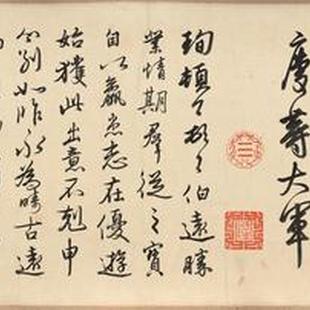 大軍
珣頓々首々伯遠勝
業情期羣從之寶
自以羸患志在優遊
始獲此出意不剋申
分別如昨永為疇古遠